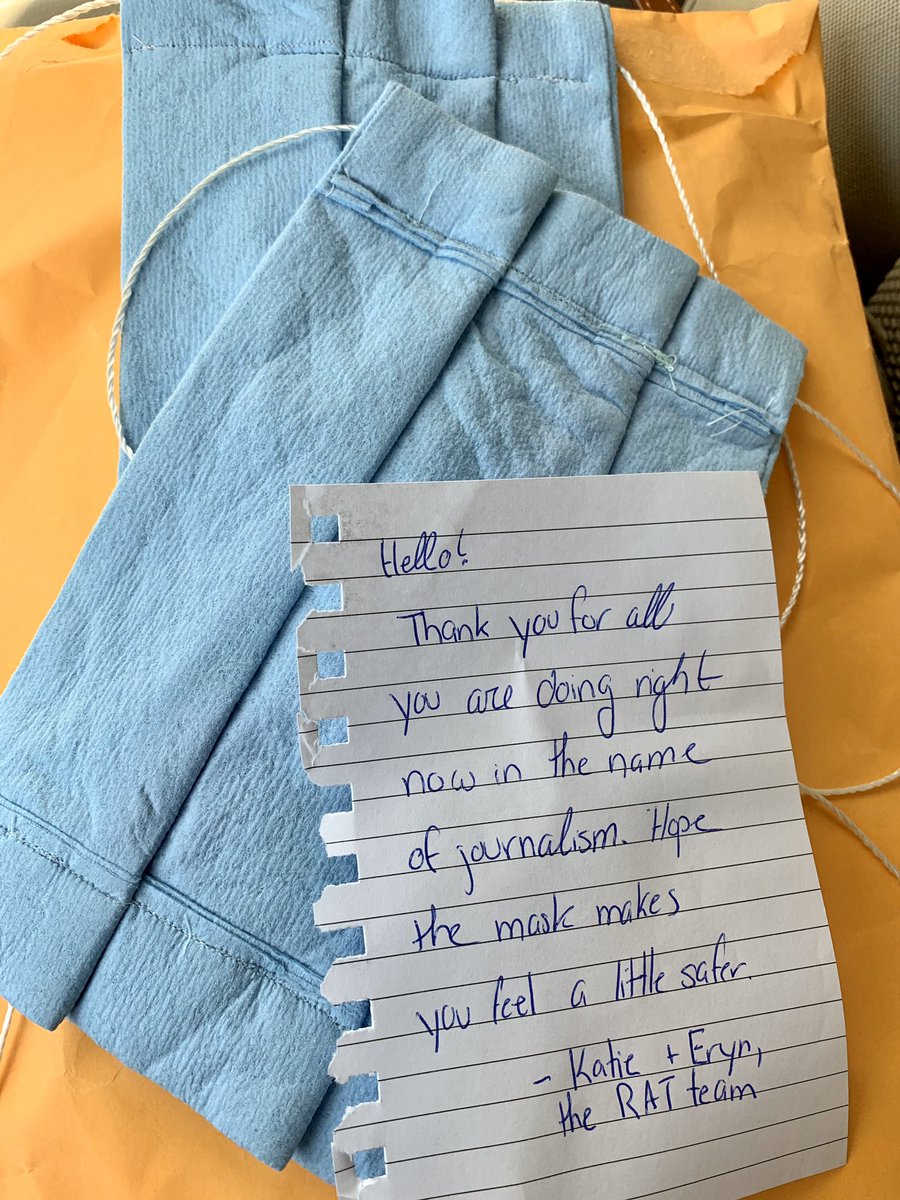 Hello!
Thank you for all
you are doing right
now in the name
of journalism. Hope
the mask makes
you feel a little safer.
- Katie + Eryn,
the RAT team